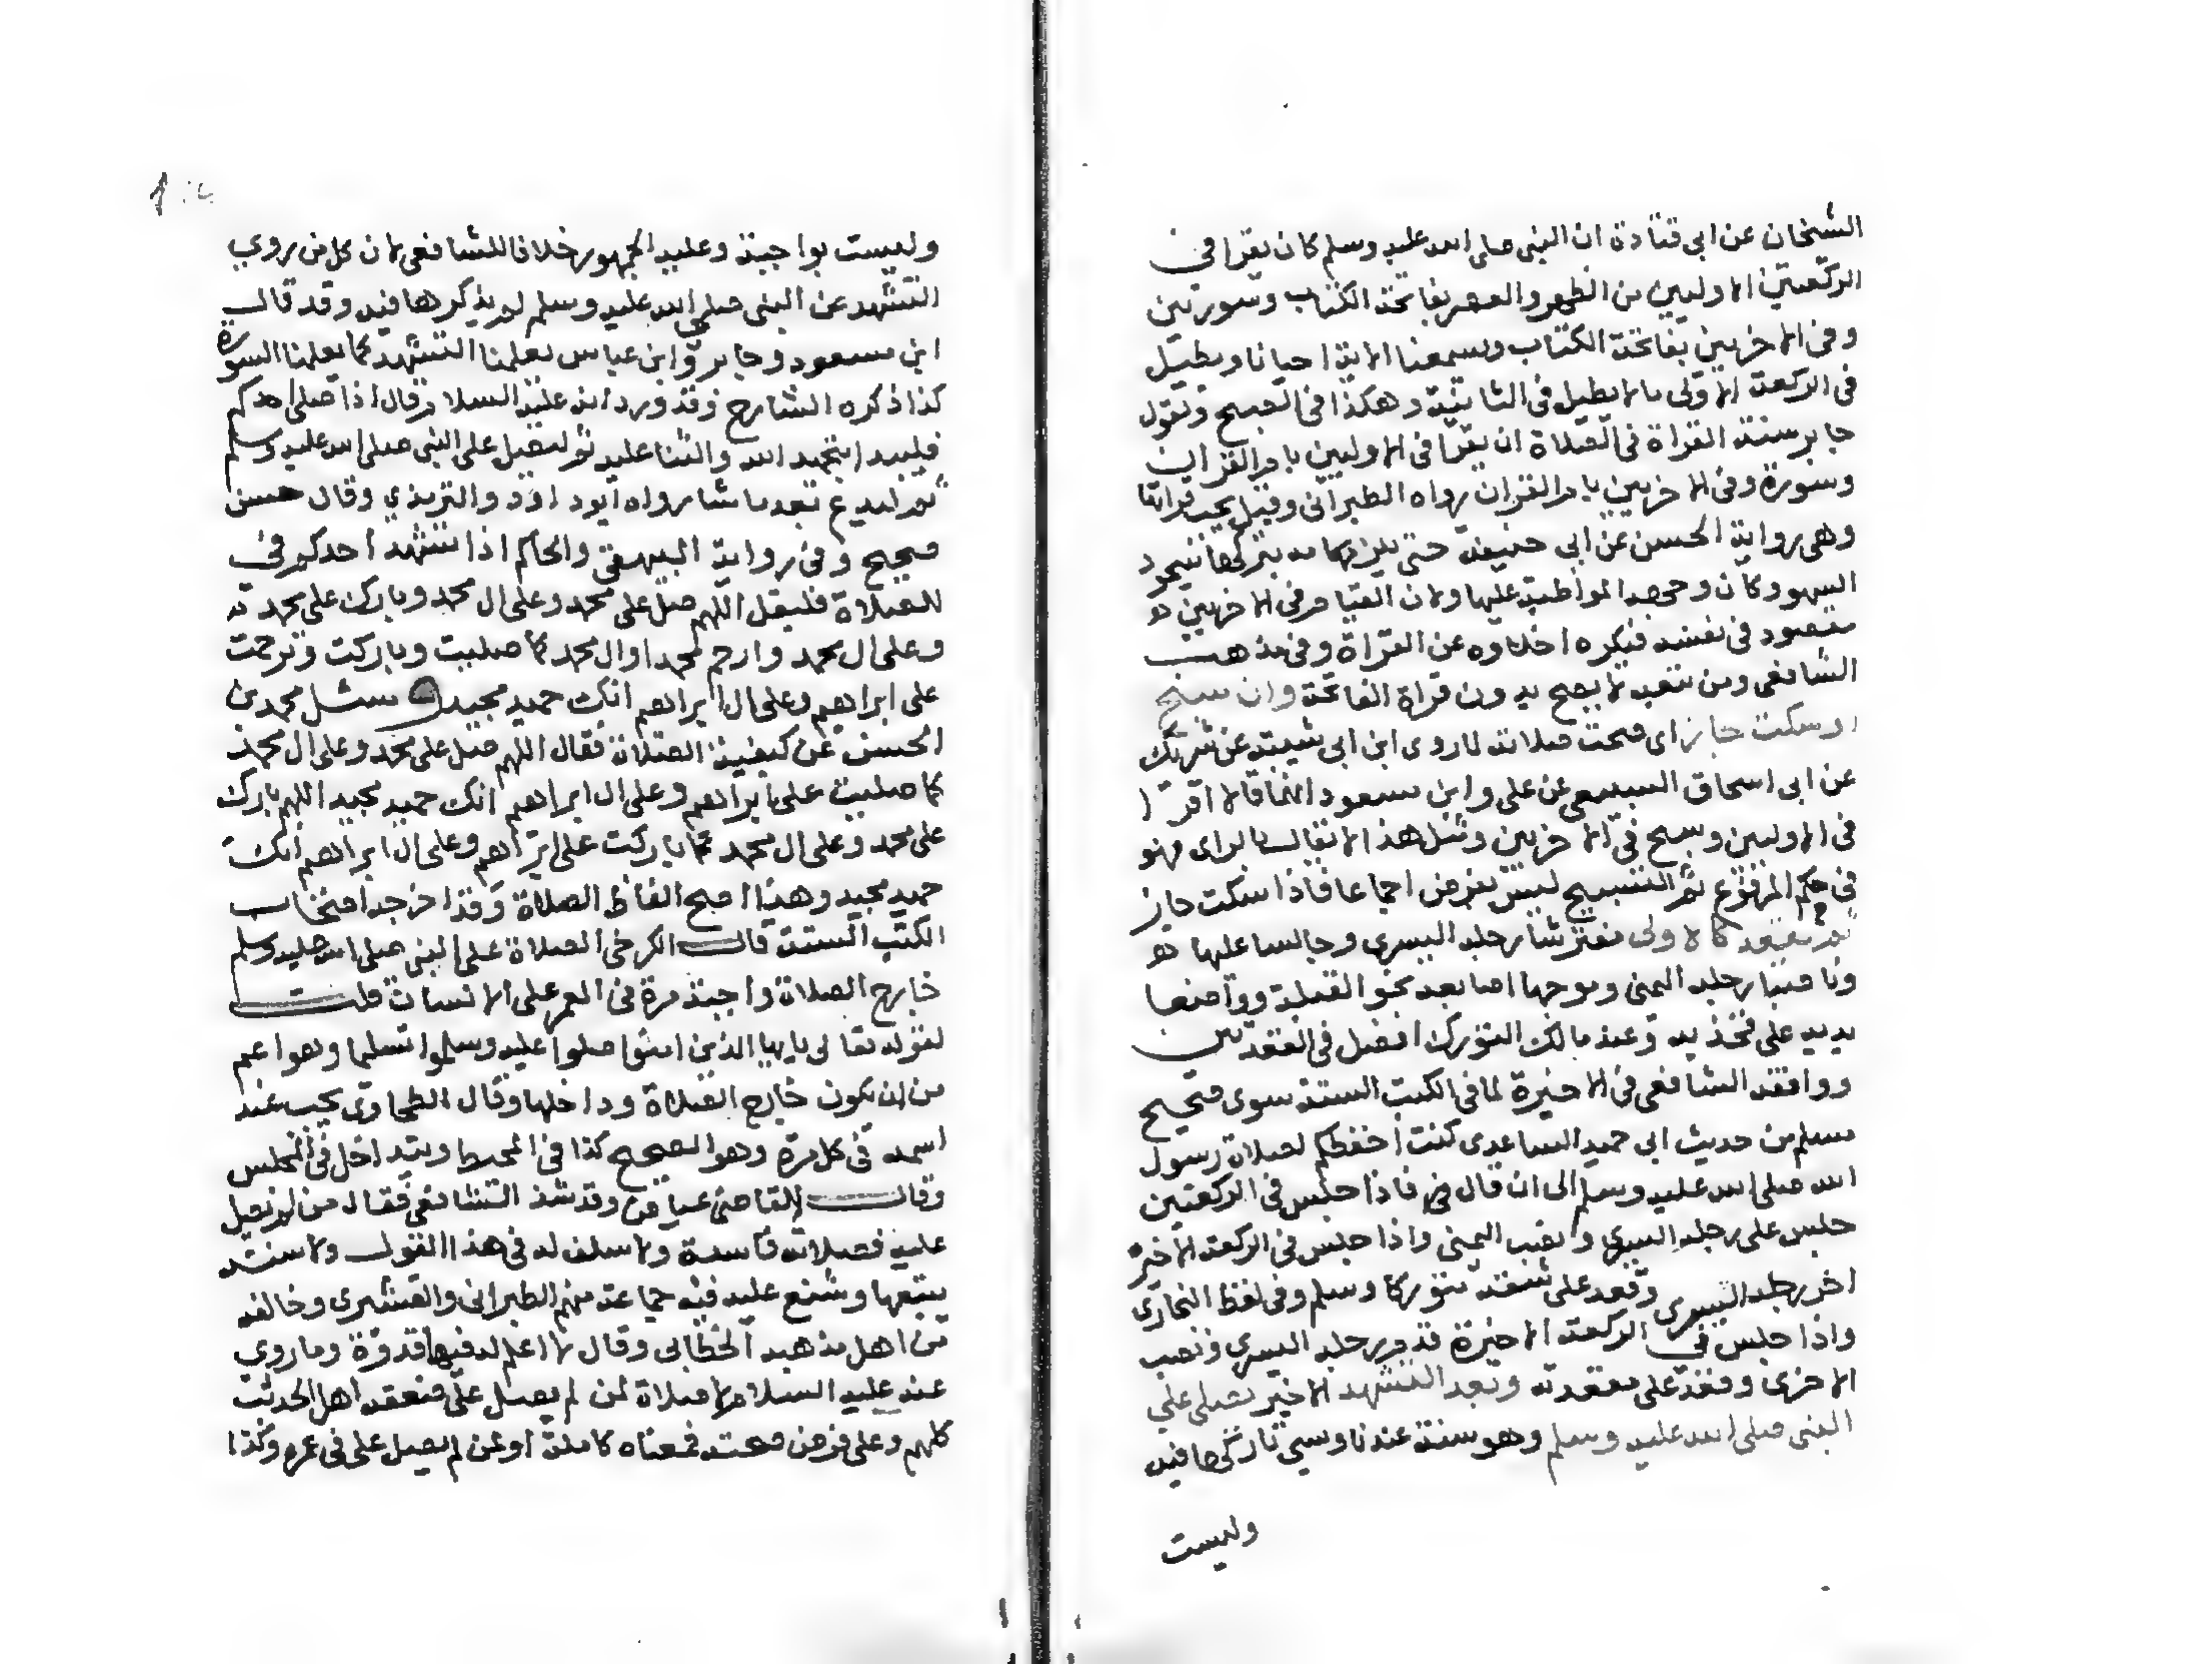 الشيخان عن ابى قتادة ان النبى صلى الله عليه وسلم كان يقرا فى
الركعتين الاوليين من الظهر والعصر بفاتحة الكتاب وسورتين
وفى الاخريين بفاتحة الكتاب ويسمعنا الاية احيانا ويطيل
فى الركعة الاولى ما لا يطيل فى الثانية وهكذا فى الصبح ويقول
جابر سنة القراة فى الصلاة ان يقرا فى الاوليين بام القران
وسورة وفى الاخريين بام القران رواه الطبرانى وقيل يجب قراتها
وهى رواية الحسن عن ابى حنيفة حتى يلزمه بتركها سجود
السهو وكان وجهه المواظبة عليها ولان القيام فى الاخريين
مقصود فى نفسه فيكره اخلاوه عن القراة وفى مذهب
الشافعى ومن تبعه لا يصح بدون قراة الفاتحة وان سبح
او سكت جاز اى صحت صلاته لما روى ابن ابى شيبة عن شريك
عن ابى اسحاق السبيعى عن على وابن مسعود انهما قالا اقرا
فى الاوليين وسبح فى الاخريين ومثل هذا لا يقال بالراى فهو
فى حكم المرفوع ثم التسبيح ليس بفرض اجماعا فاذا سكت جاز
ثم يقعد كالاولى مفترشا رجله اليسرى وجالسا عليها
وناصبا رجله اليمنى وموجها اصابعه نحو القبلة وواضعا
يديه على فخذيه وعند مالك التورك افضل فى القعدتين
ووافقه الشافعى فى الاخيرة لما فى الكتب الستة سوى صحيح
مسلم من حديث ابى حميد الساعدى كنت احفظكم لصلاة رسول
الله صلى الله عليه وسلم الى ان قال فاذا جلس فى الركعتين
جلس على رجله اليسرى ونصب اليمنى واذا جلس فى الركعة الاخيرة
اخر رجله اليسرى وقعد على شقه متوركا وسلم وفى لفظ البخارى
واذا جلس فى الركعة الاخيرة قدم رجله اليسرى ونصب
الاخرى وقعد على مقعدته وبعد التشهد الاخير يصلى على
النبى صلى الله عليه وسلم وهو سنة عندنا وسيئ تاركها فيه
وليست
وليست بواجبة وعليه الجمهور خلافا للشافعى لان كل من روى
التشهد عن النبى صلى الله عليه وسلم لم يذكرها فيه وقد قال
ابن مسعود وجابر وابن عباس يعلمنا التشهد كما يعلمنا السورة
كذا ذكره الشارح وقد ورد انه عليه السلام قال اذا صلى احدكم
فليبدا بتحميد الله والثنا عليه ثم ليصل على النبى صلى الله عليه وسلم
ثم ليدع بعد ما شا رواه ابو داود والترمذى وقال حسن
صحيح وفى رواية البيهقى والحاكم اذا تشهد احدكم فى
الصلاة فليقل اللهم صل على محمد وعلى ال محمد وبارك على محمد
وعلى ال محمد وارحم محمدا وال محمد كما صليت وباركت وترحمت
على ابراهيم وعلى ال ابراهيم انك حميد مجيد وسئل محمد بن
الحسن عن كيفية الصلاة فقال اللهم صل على محمد وعلى ال محمد
كما صليت على ابراهيم وعلى ال ابراهيم انك حميد مجيد اللهم بارك
على محمد وعلى ال محمد كما باركت على ابراهيم وعلى ال ابراهيم انك
حميد مجيد وهذا اصح الفاظ الصلاة وقد اخرجه اصحاب
الكتب الستة قال الكرخى الصلاة على النبى صلى الله عليه وسلم
خارج الصلاة واجبة مرة فى العمر على الانسان قلت
لقوله تعالى يايها الذين امنوا صلوا عليه وسلموا تسليما وهو اعم
من ان يكون خارج الصلاة وداخلها وقال الطحاوى يجب عند
اسمه فى كل مرة وهو الصحيح كذا فى المحيط ويتداخل فى المجلس
وقال القاضى عياض وقد شذ الشافعى فقال من لم يصل
عليه فصلاته فاسدة ولا سلف له فى هذا القول ولا سنة
يتبعها وشنع عليه فيه جماعة منهم الطبرانى والقشيرى وخالفه
من اهل مذهبه الخطابى وقال لا اعلم له فيها قدوة وما روى
عنه عليه السلام لا صلاة لمن لم يصل على ضعفه اهل الحديث
كلهم وعلى فرض صحته فمعناه كاملة او لمن لم يصل على فى عمره وكذا